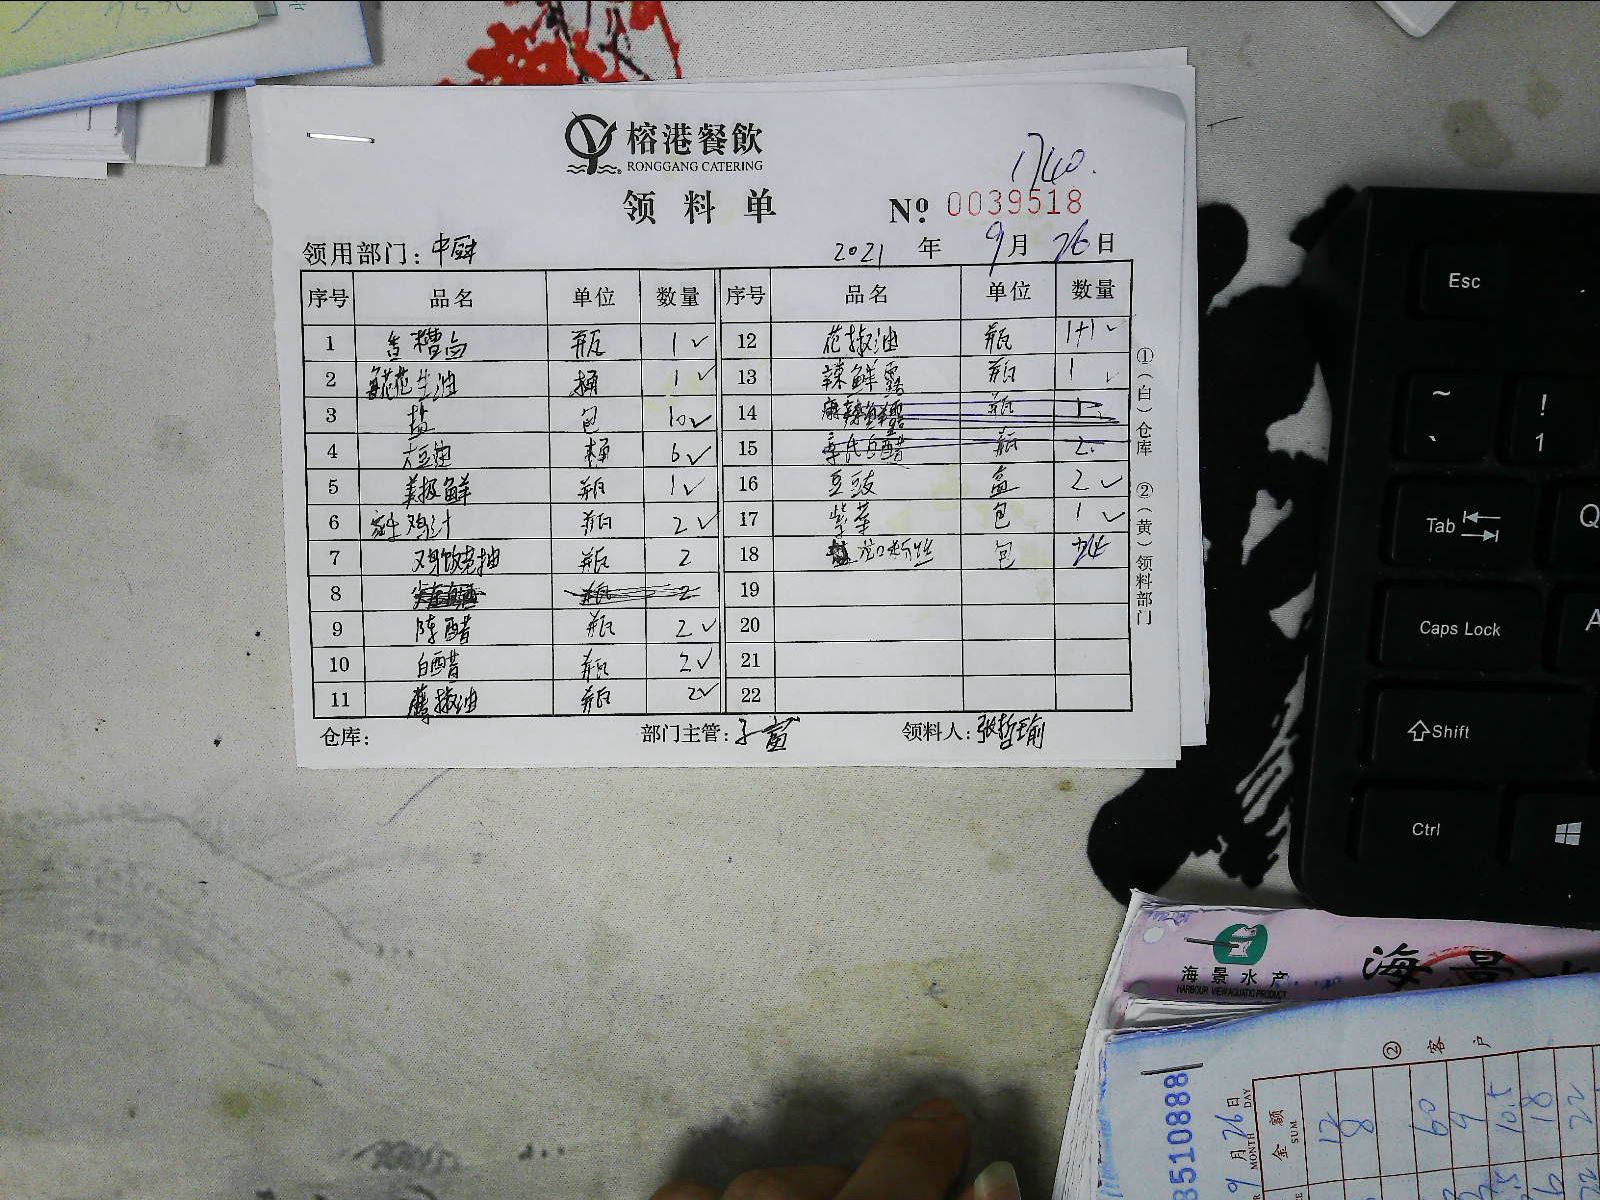 榕港餐飲
RONGGANG CATERING
1740.
领料单 Nº 0039518
领用部门:中厨 2021年9月26日
序号 品名 单位 数量 序号 品名 单位 数量
1 香糟卤 瓶 1✓ 12 花椒油 瓶 1+1✓
2 花生油 桶 1✓ 13 辣鲜露 瓶 1✓
3 盐 包 10✓ 14 麻辣鲜露 瓶 1
4 大豆油 桶 6✓ 15 白醋 瓶 2
5 美极鲜 瓶 1✓ 16 豆豉 盒 2✓
6 鸡汁 瓶 2✓ 17 紫菜 包 1✓
7 瓶 2 18 龙口粉丝 包
8 瓶 2 19
9 陈醋 瓶 2✓ 20
10 白醋 瓶 2✓ 21
11 椒油 瓶 2✓ 22
①(白)仓库 ②(黄)领料部门
仓库: 部门主管: 领料人:张哲瑜
Esc
~ ` ! 1
Tab Q
Caps Lock A
Shift
Ctrl
海景水产
HARBOUR VIEW AQUATIC PRODUCT
海景水
②客户
8510888
9月26日
MONTH DAY
金额
SUM
12
8
60
9
10.5
18
22